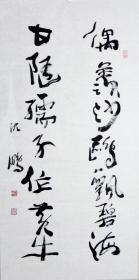 偶羨沙鷗飄碧海
甘隨孺子作黃牛
沈鵬